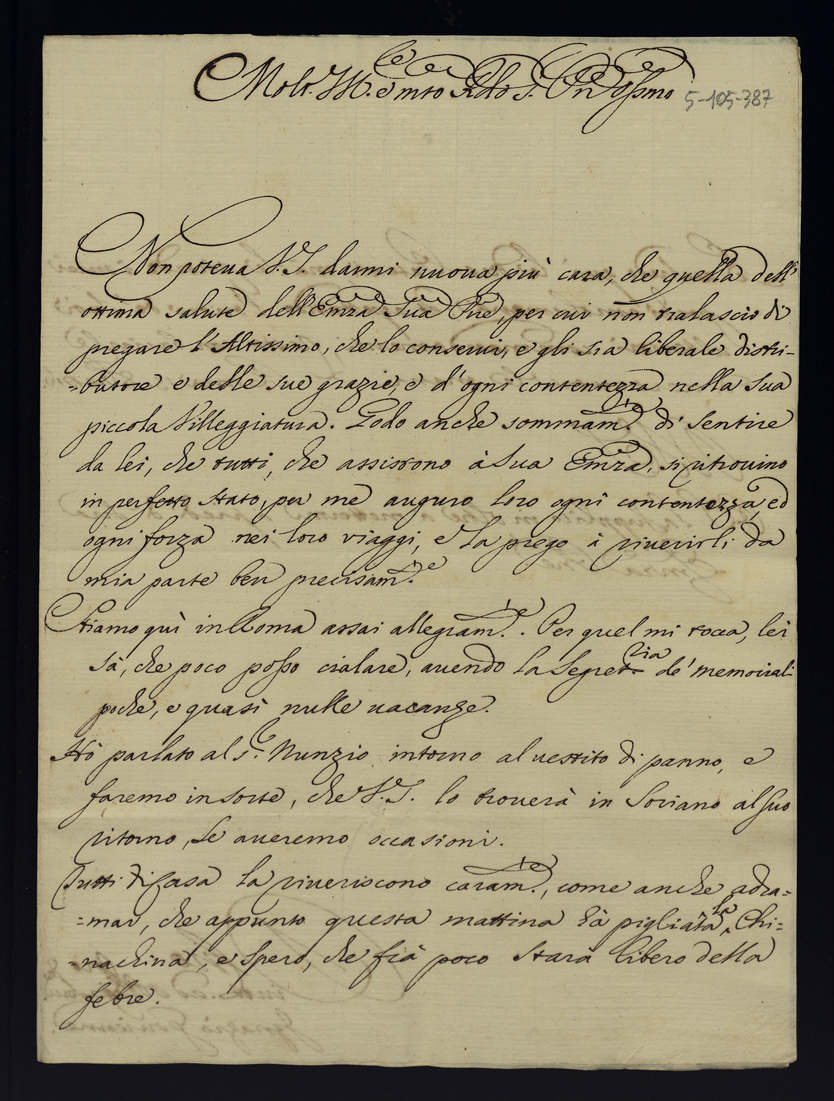 Molt. Ill.e e mto Rdo S. Pn Ossmo
5-105-387
Non poteua V.S. darmi nuoua più cara, che quella dell'
ottima salute dell'Emza Sua Pne, per cui non tralascio di
pregare l'Altissimo, che lo conserui, e gli sia liberale distri-
-butore e delle sue grazie, e d'ogni contentezza nella sua
piccola Villeggiatura. Godo anche sommam.te di sentire
da lei, che tutti, che assistono à Sua Emza, si ritrouino
in perfetto stato, per me auguro loro ogni contentezza, ed
ogni forza nei loro viaggi, e la prego à riuerirli da
mia parte ben precisam.te
Stiamo quì in Roma assai allegram.te. Per quel mi tocca, lei
sà, che poco posso cialare, auendo la Segret.ria de' memorial.
poche, e quasi nulle uacanze.
Hò parlato al S.r Nunzio intorno al uestito di panno, e
faremo in sorte, che V.S. lo trouerà in Soriano al suo
ritorno, se aueremo occasioni.
Tutti di casa la riueriscono caram.te, come anche adra=
=mar, che appunto questa mattina hà pigliata la Chi=
=nachina, e spero, che frà poco starà libero della
febre.